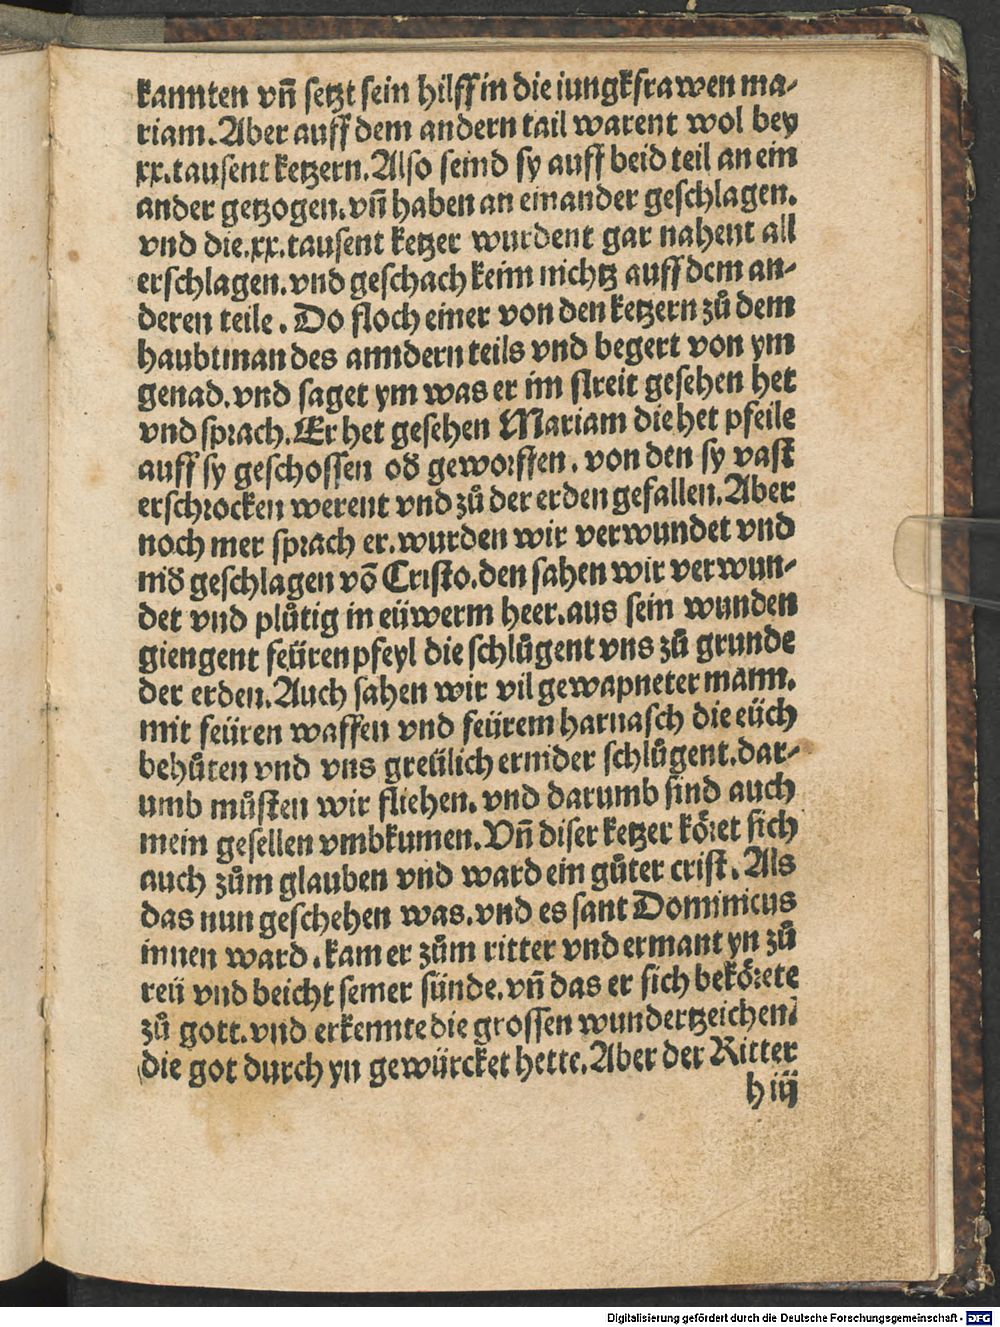 kannten vñ setzt sein hilff in die iungkfrawen ma-
riam. Aber auff dem andern tail warent wol bey
xx. tausent ketzern. Also seind sy auff beid teil an ein
ander getzogen. vñ haben an einander geschlagen.
vnd die. xx. tausent ketzer wurdent gar nahent all
erschlagen. vnd geschach keim nichtz auff dem an-
deren teile. Do floch einer von den ketzern zů dem
haubtman des anndern teils vnd begert von ym
genad. vnd saget ym was er im streit gesehen het
vnd sprach. Er het gesehen Mariam die het pfeile
auff sy geschossen od̕ geworffen. von den sy vast
erschrocken werent vnd zů der erden gefallen. Aber
noch mer sprach er. wurden wir verwundet vnd
nid̕ geschlagen võ Cristo. den sahen wir verwun-
det vnd plůtig in eüwerm heer. aus sein wunden
giengent feüren pfeyl die schlůgent vns zů grunde
der erden. Auch sahen wir vil gewapneter mann.
mit feüren waffen vnd feürem harnasch die eüch
behůten vnd vns greülich ernider schlůgent. dar-
umb můsten wir fliehen. vnd darumb sind auch
mein gesellen vmbkumen. Vñ diser ketzer köret sich
auch zům glauben vnd ward ein gůter crist. Als
das nun geschehen was. vnd es sant Dominicus
innen ward. kam er zům ritter vnd ermant yn zů
reü vnd beicht seiner sünde. vñ das er sich bekörete
zů gott. vnd erkennte die grossen wundertzeichen.
die got durch yn gewürcket hette. Aber der Ritter
h iij
Digitalisierung gefördert durch die Deutsche Forschungsgemeinschaft - DFG